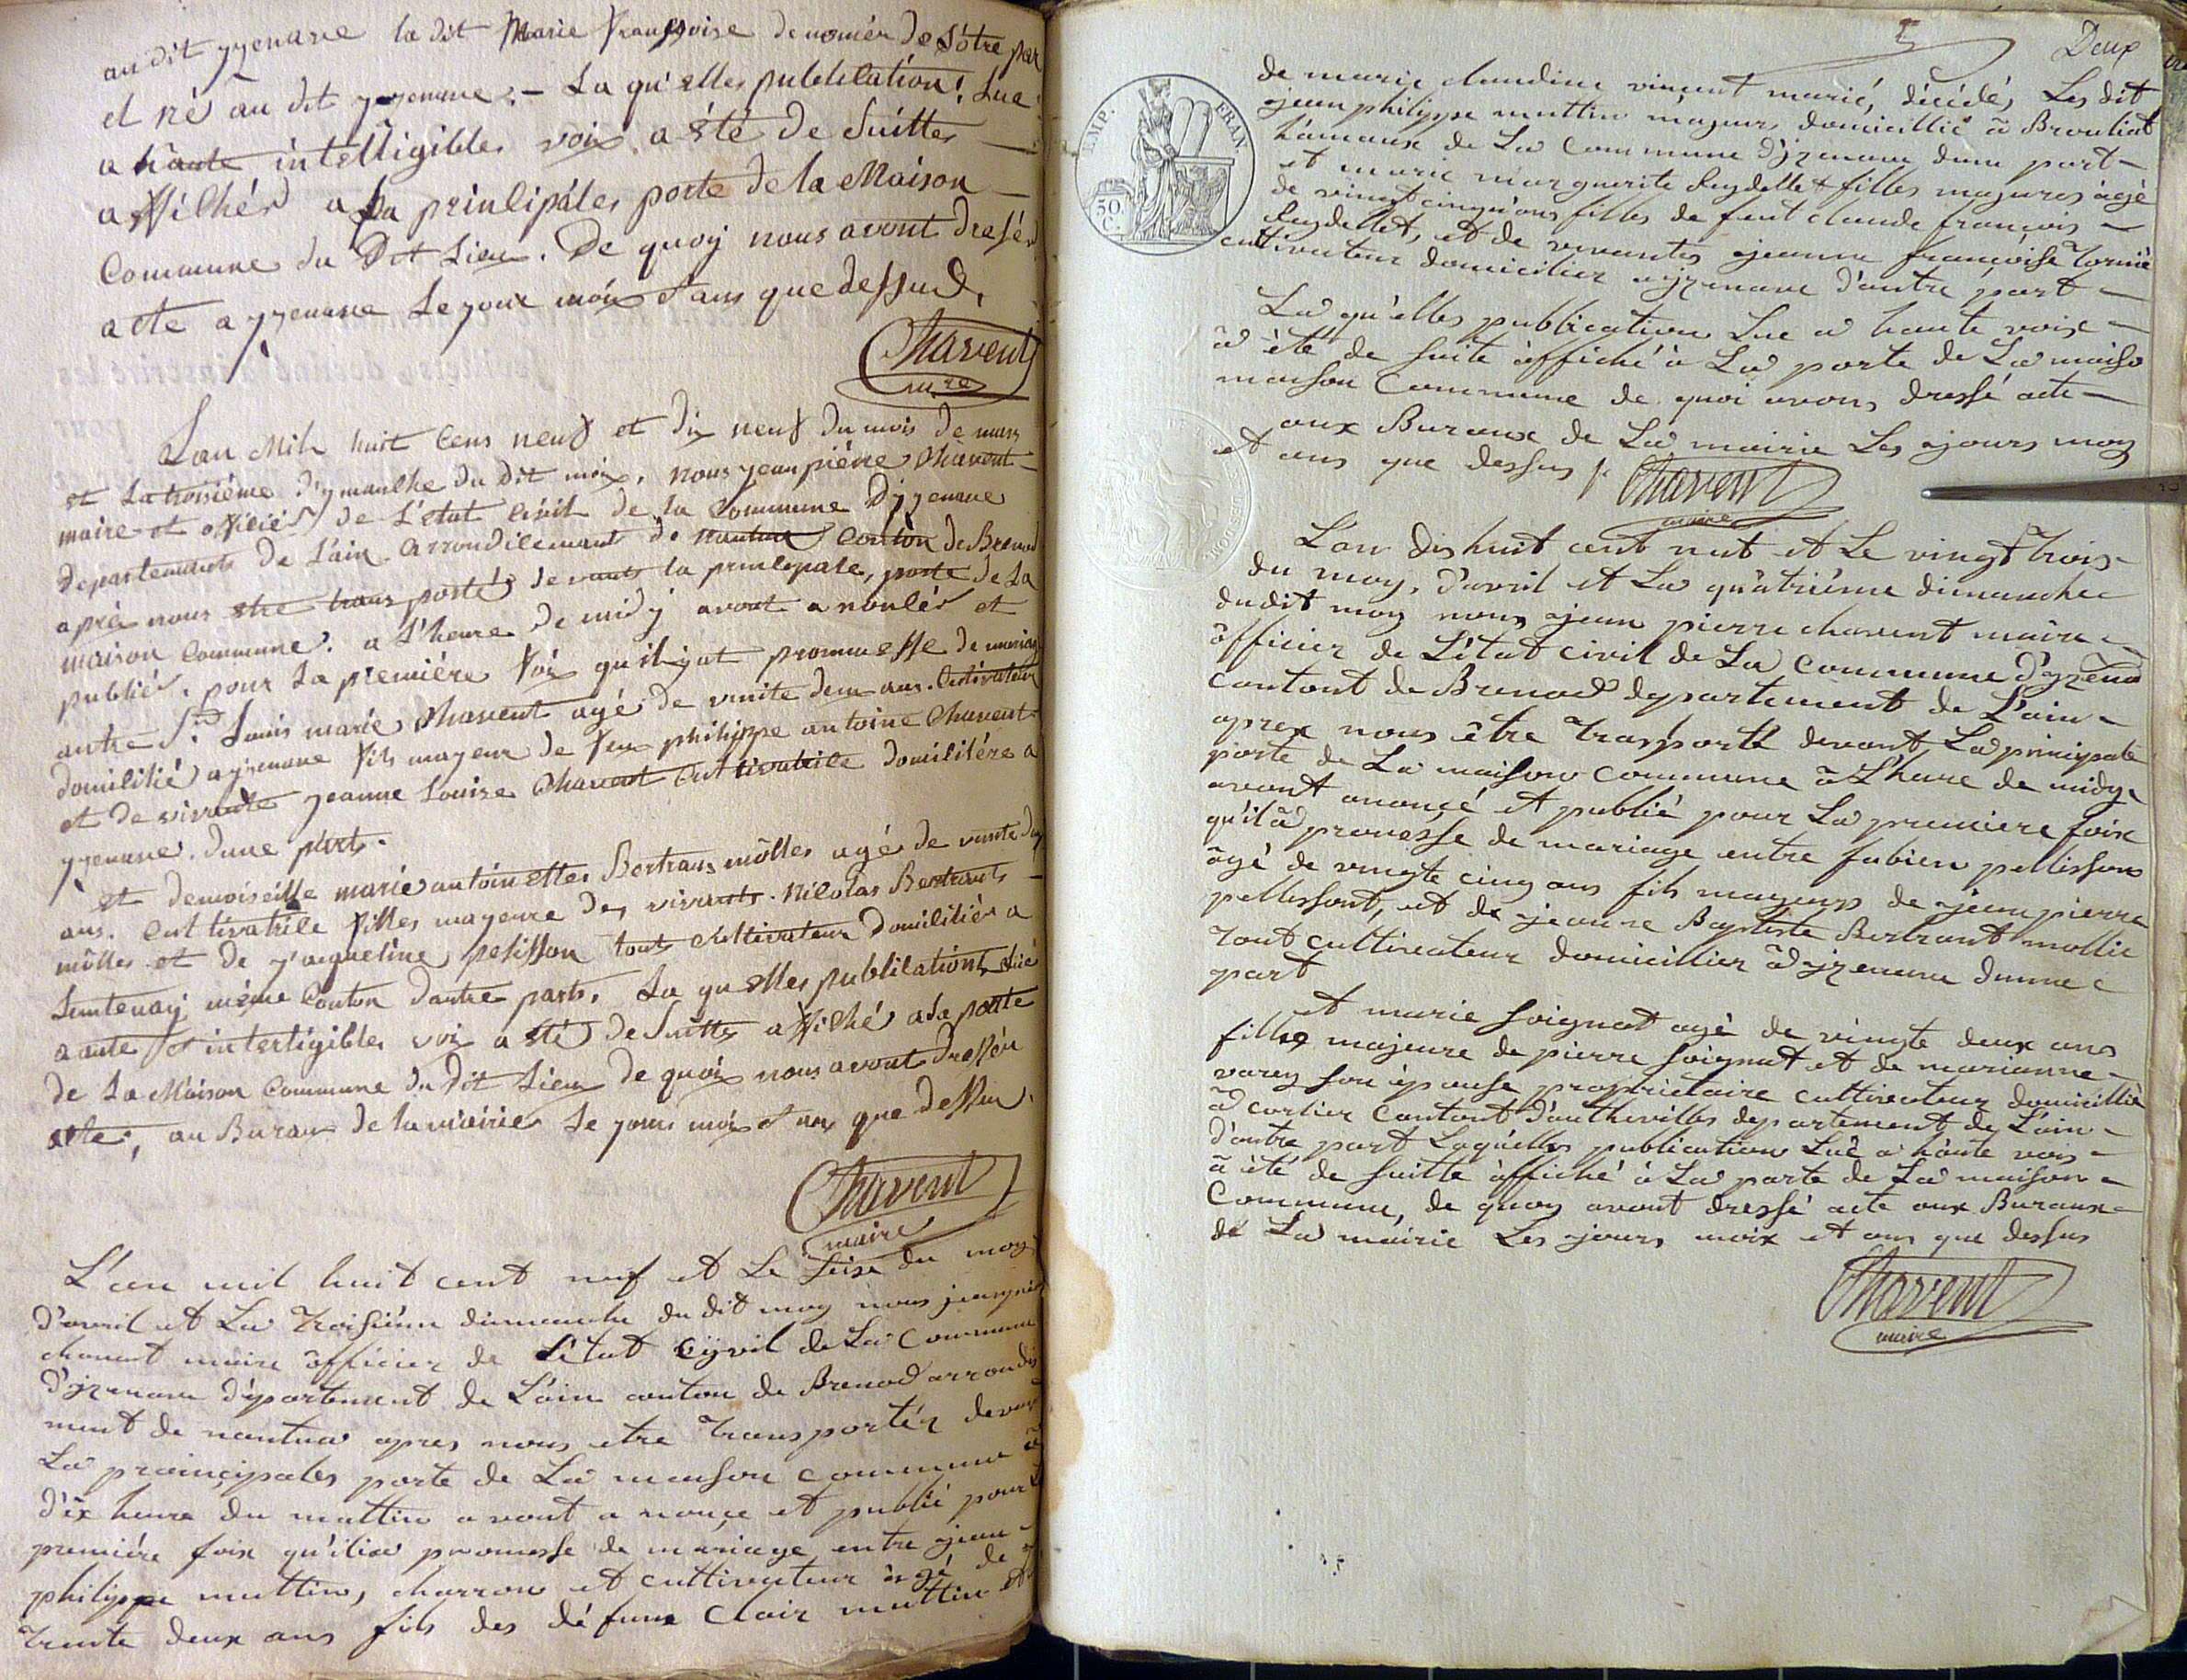 au dit yzenave la dit Marie Françoise demeuér de S'ôtre par
et né au dit yzenave. – La qu'elles publilation! Lue
a hàute intelligibles voix a été de Suittes —
affilhér a la prinlipáles porte de la Maison —
Commune du Dit Lieu. De quoy nous avont dresér
acte a yzenave Le jour moix et ans que dessud,
Chavent
mre
Lan Mil huit Cens neuf et dix neuf du mois de mars
et La troisiéme dymanlhe du dit mois, nous jean piérre Chavent –
maire et officiér de L'état Civil de la Commune Dyzenave
Departements de L'ain Arrondilemants de Nantua Conton de Brenod
aprés nous etre trans portér devants la prinlipale, porte de La
maison Commune. a L'heure de midy avont a nonlér et
publiér. pour La premiére fois quil y at prommesse de mariag
antre Sr. Louis marie Chavent agé de vinte deux ans. Cultivateur
domilié a yzenave fils mayeur de feu philippe antoine Chavent
et de vivante jeanne Louise Chavent Cultivatrile domilière a
yzenave. dune parts.
et demoiseille marie antoinettes Bertrans môlles agé de vinte
ans. Cultivatrile filles mayeure des vivants. Nilolas Bertrants –
môlles et de jaqueline pelisson touts Cultivateur domiliér a
Lentenay même Conton dautre parts. La qu elles publilationt, lué
a aute et intelligibles voix a été de Suittes affilhé a la porte
de La Maison Commune du dit Lieu de quoi nous avont dressér
acte, au Burau de la mairie Le jours mois et ans que dessus.
Chavent
maire
L'an mil huit cent neuf et Le Seize du moy
d'avril et La Troisiéme dimanche du dit moy nous jeanpier
chavent maire officier de L'état Cyvil de La Commune
d'yzenave département de L'ain canton de Brenod arrondis
ment de nantua apres nous etre Transportér devan
La prainçipales porte de La maison commune à
d'ix heure du mattin avont a nonçe et publié pour L
première foix qu'ilia promesse de mariage entre jean
philippe muttin, charron et cultivateur agé de
Trente deux ans fils des défunx Clair muttin et
Deux
EMP. FRAN
50 C.
de marie claudine vincent marié, décédés Les dit
jean philippe muttin majeur domicillié à Brouliat
hâmaux de La Commune d'yzenave dune part –
et marie marguerite Reydellet filles majures àgé
de vingt cinqu'ans filles de feut claude françois –
Reydellet, et de vivantes jeanne françoise Tornié
cultivateur domicilier a yzenave d'autre part –
La qu'elles publication Lue a haute voix –
à été de Suite affiché à La porte de La maiso
maison Commune de quoi avons dressé acte –
aux Buraux de La mairie Les jours moy
et ans que dessus
Chavent
maire
L'an dis huit cent neut et Le vingt Trois –
du moy, d'avril et La qu'atriéme dimanche
dudit moy nous jean pierre chavent maire –
officier de L'état civil de La Commune d'yzena
contont de Brenod département de L'ain –
aprex nous être Trasporté devant La principale
porte de La maison Commune à L'hure de midy
avont anonçé et publié pour La premiere foix
qu'il à promesse de mariage entre fabien pellissons
âgé de vingte cinq ans fils mayeurs de jean pierre
pellissont, et de jeanne Baptiste Bertrant mollie
Tout cultivateur domicillier à d'yzenave dunne
part
et marie Soignat agé de vingte deux ans
filles majeure de pierre Soignat et de marianne –
varey son épouse propriétaire cultivateur domicillié
à corlier Contont d'authevilles département de L'ain –
d'autre part Laqu'elles publication Lué a hàute vois –
à été de Suitte affiché à La porte de La maison –
Commune, de quoy avont dressé acte aux Buraux –
de La mairie Les jours moix et ans que dessus
Chavent
maire